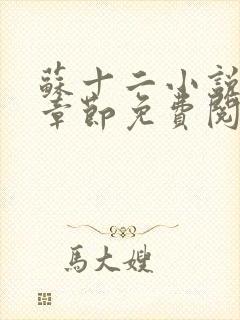 蘇十二小說
章節免費閱
馬大嫂